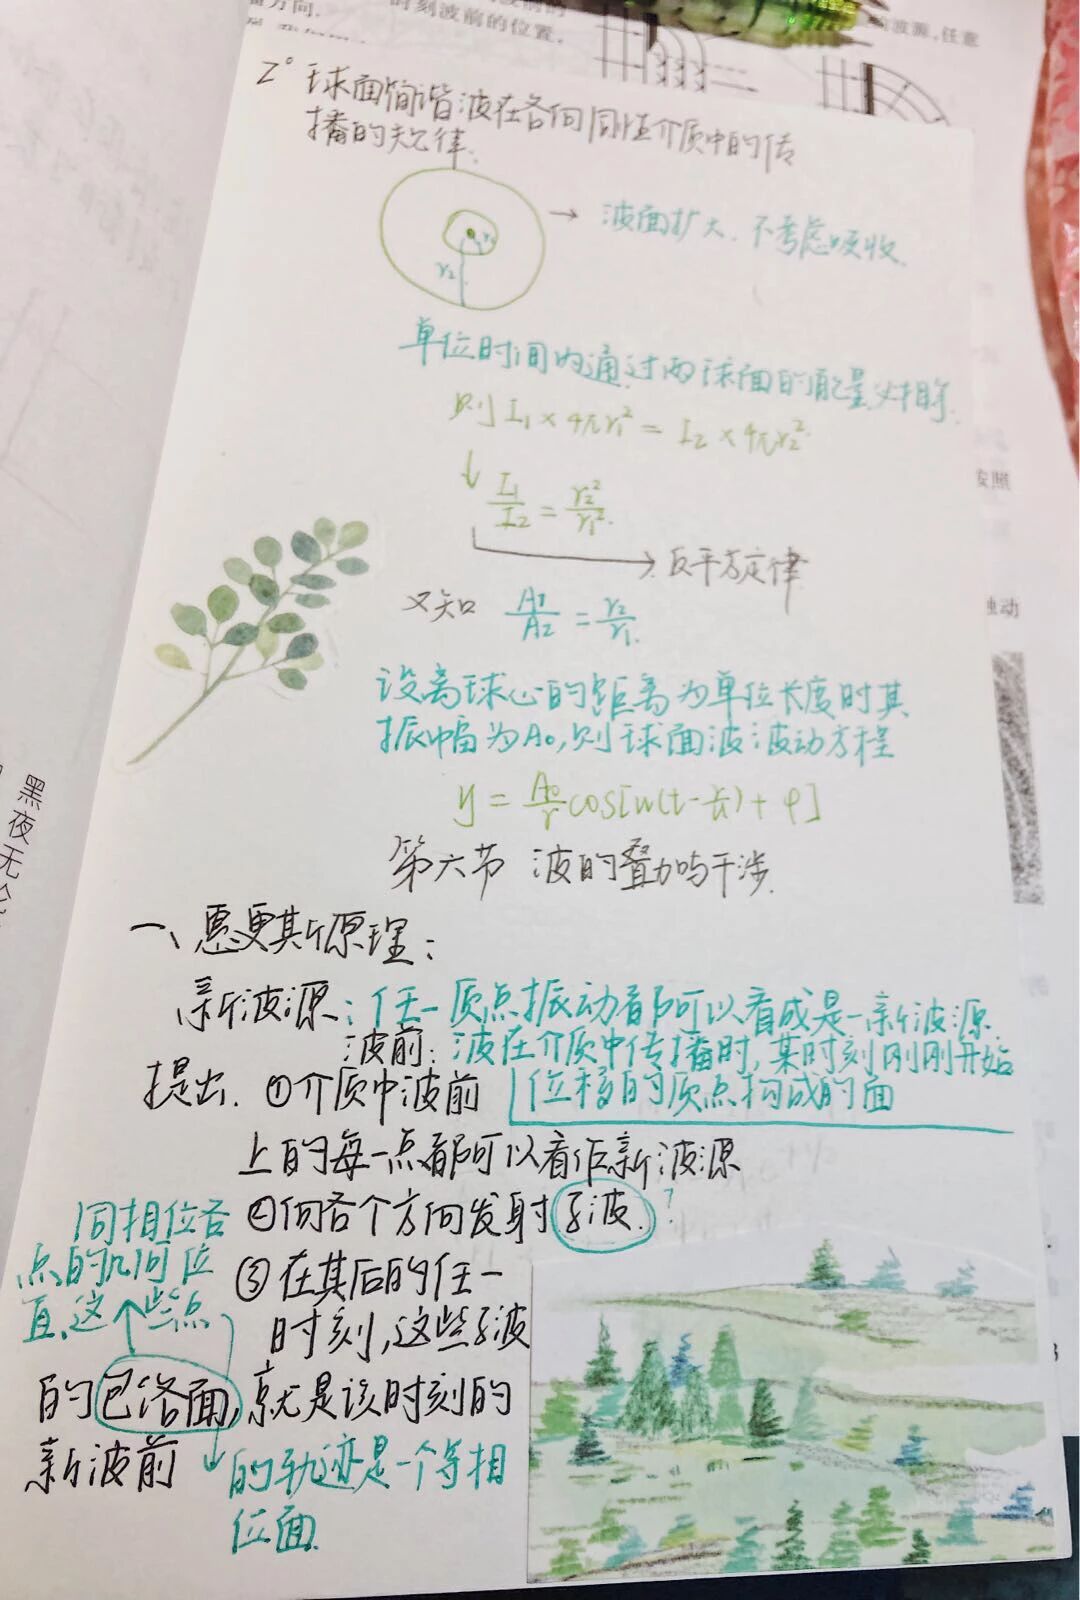 时刻波前的位置.
波源,任意
2° 球面简谐波在各向同性介质中的传
播的规律.
r₁
r₂
→ 波面扩大. 不考虑吸收.
单位时间内通过两球面的能量必相等.
则 I₁ × 4πr₁² = I₂ × 4πr₂².
↓ I₁/I₂ = r₂²/r₁².
→ 反平方定律
又知 A₁/A₂ = r₂/r₁.
设离球心的距离为单位长度时其
振幅为A₀,则球面波波动方程
y = A₀/r cos[w(t-r/u)+φ]
第六节 波的叠加与干涉.
一、惠更斯原理:
新波源:任一质点振动都可以看成是一新波源.
波前:波在介质中传播时,某时刻刚刚开始
位移的质点构成的面
提出. ①介质中波前
上的每一点都可以看作新波源
②向各个方向发射子波.?
③在其后的任一
时刻,这些子波
的包络面,就是该时刻的
新波前
同相位各
点的几何位
置.这些点
的轨迹是一个等相
位面.
按照
黑夜无论